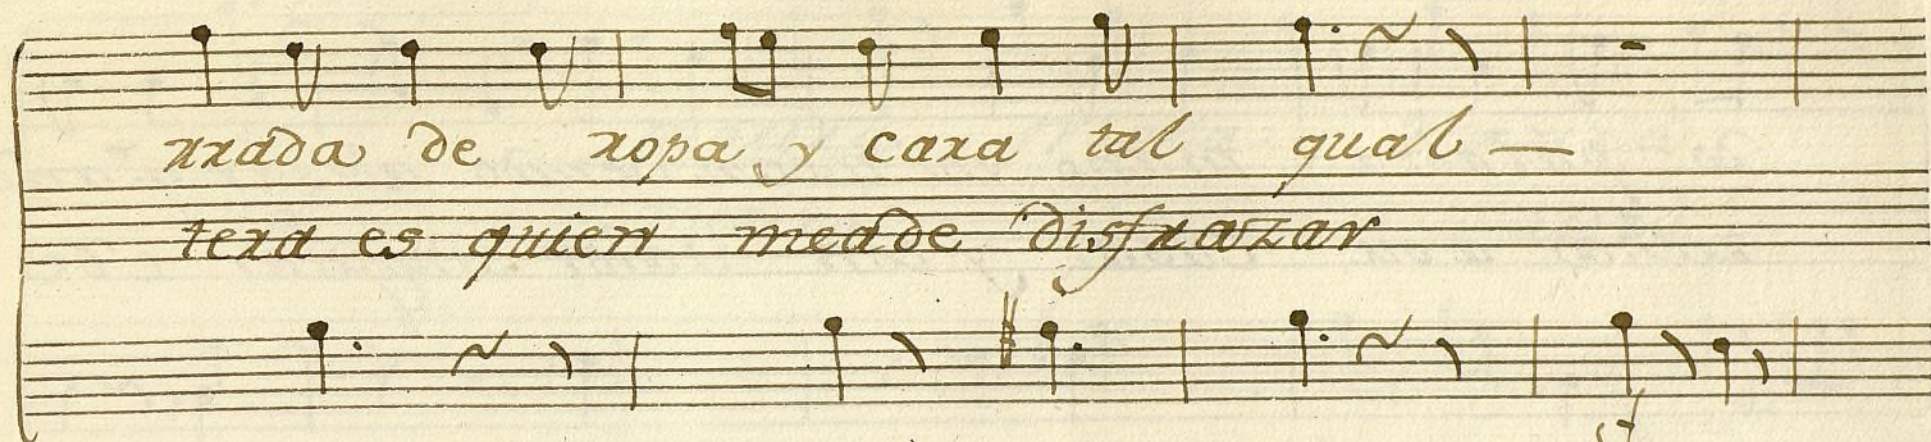 rrada de ropa y cara tal qual —
tera es quien meade disfrazar